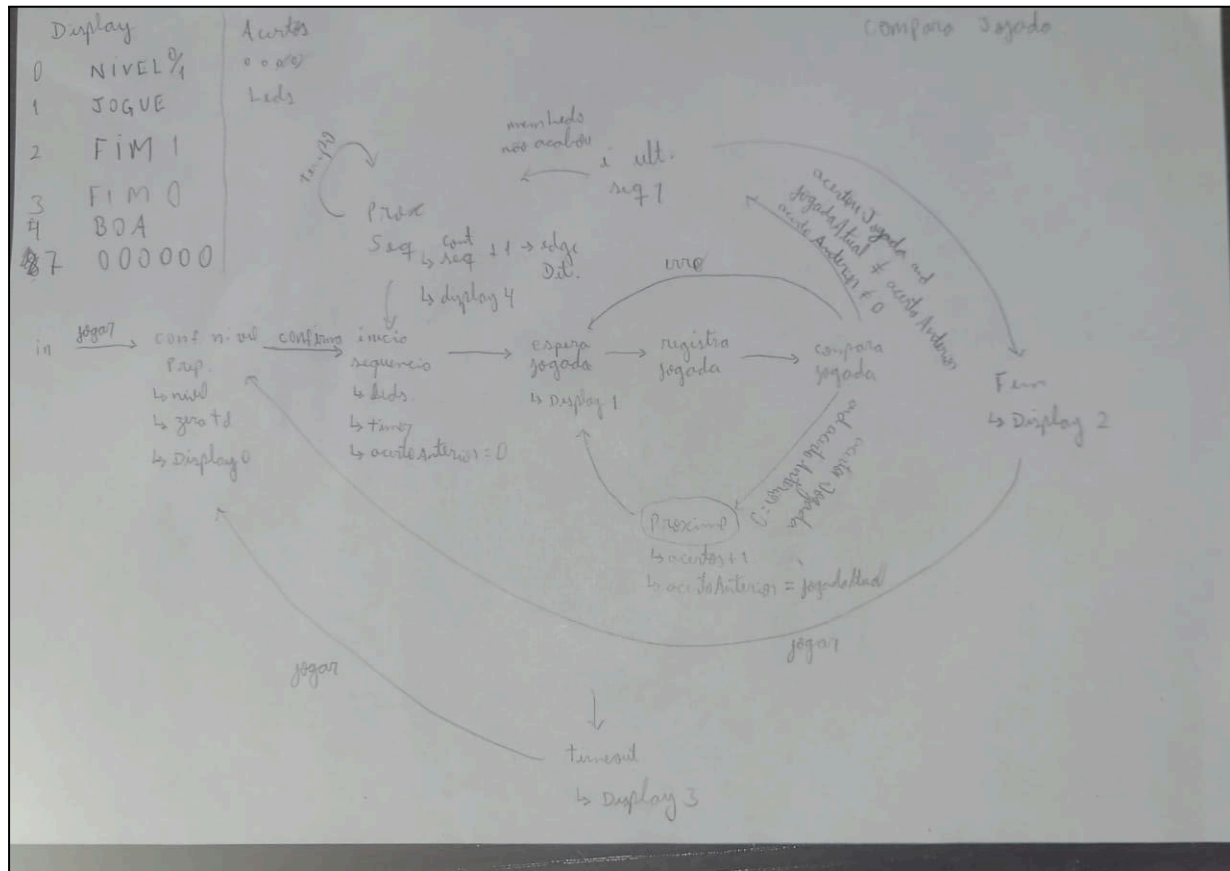 Display
0 NIVEL 0/1
1 JOGUE
2 FIM 1
3 FIM 0
4 BOA
7 000000
Acertos
Leds
Compara Jogada
memLeds
não acabou
é ult.
seq ?
Prox
Seq
↳ cont
seq ++1 → edge
Det.
↳ display 4
erro
acertou Jogada and
jogadaAtual ≠ acertoAnterior
acertoAnterior ≠ 0
in
jogar
conf nivel
Prep.
↳ nivel
↳ zera td
↳ Display 0
confirma
inicio
sequencia
↳ leds
↳ timer
↳ acertoAnterior = 0
espera
jogada
↳ Display 1
registra
jogada
compara
jogada
Fim
↳ Display 2
acerta Jogada
and acertoAnterior = 0
Proximo
↳ acertos ++1
↳ acertoAnterior = jogadaAtual
jogar
jogar
timeout
↳ Display 3